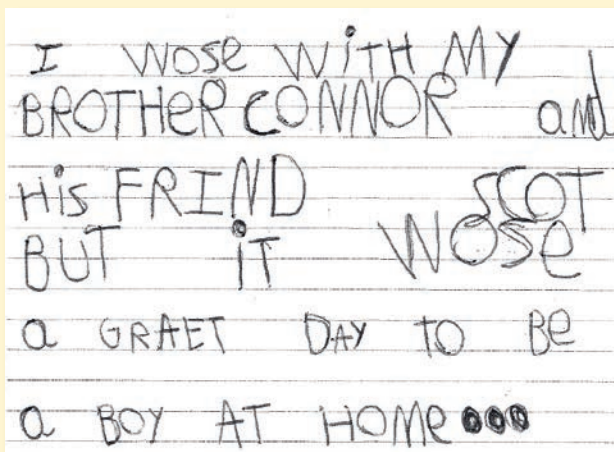 I WOSe WiTH MY
BROTHeR CONNOR and
HiS FRIND SCOT
BUT iT WOSe
a GRAET DAY TO Be
a BOY AT HOMe...